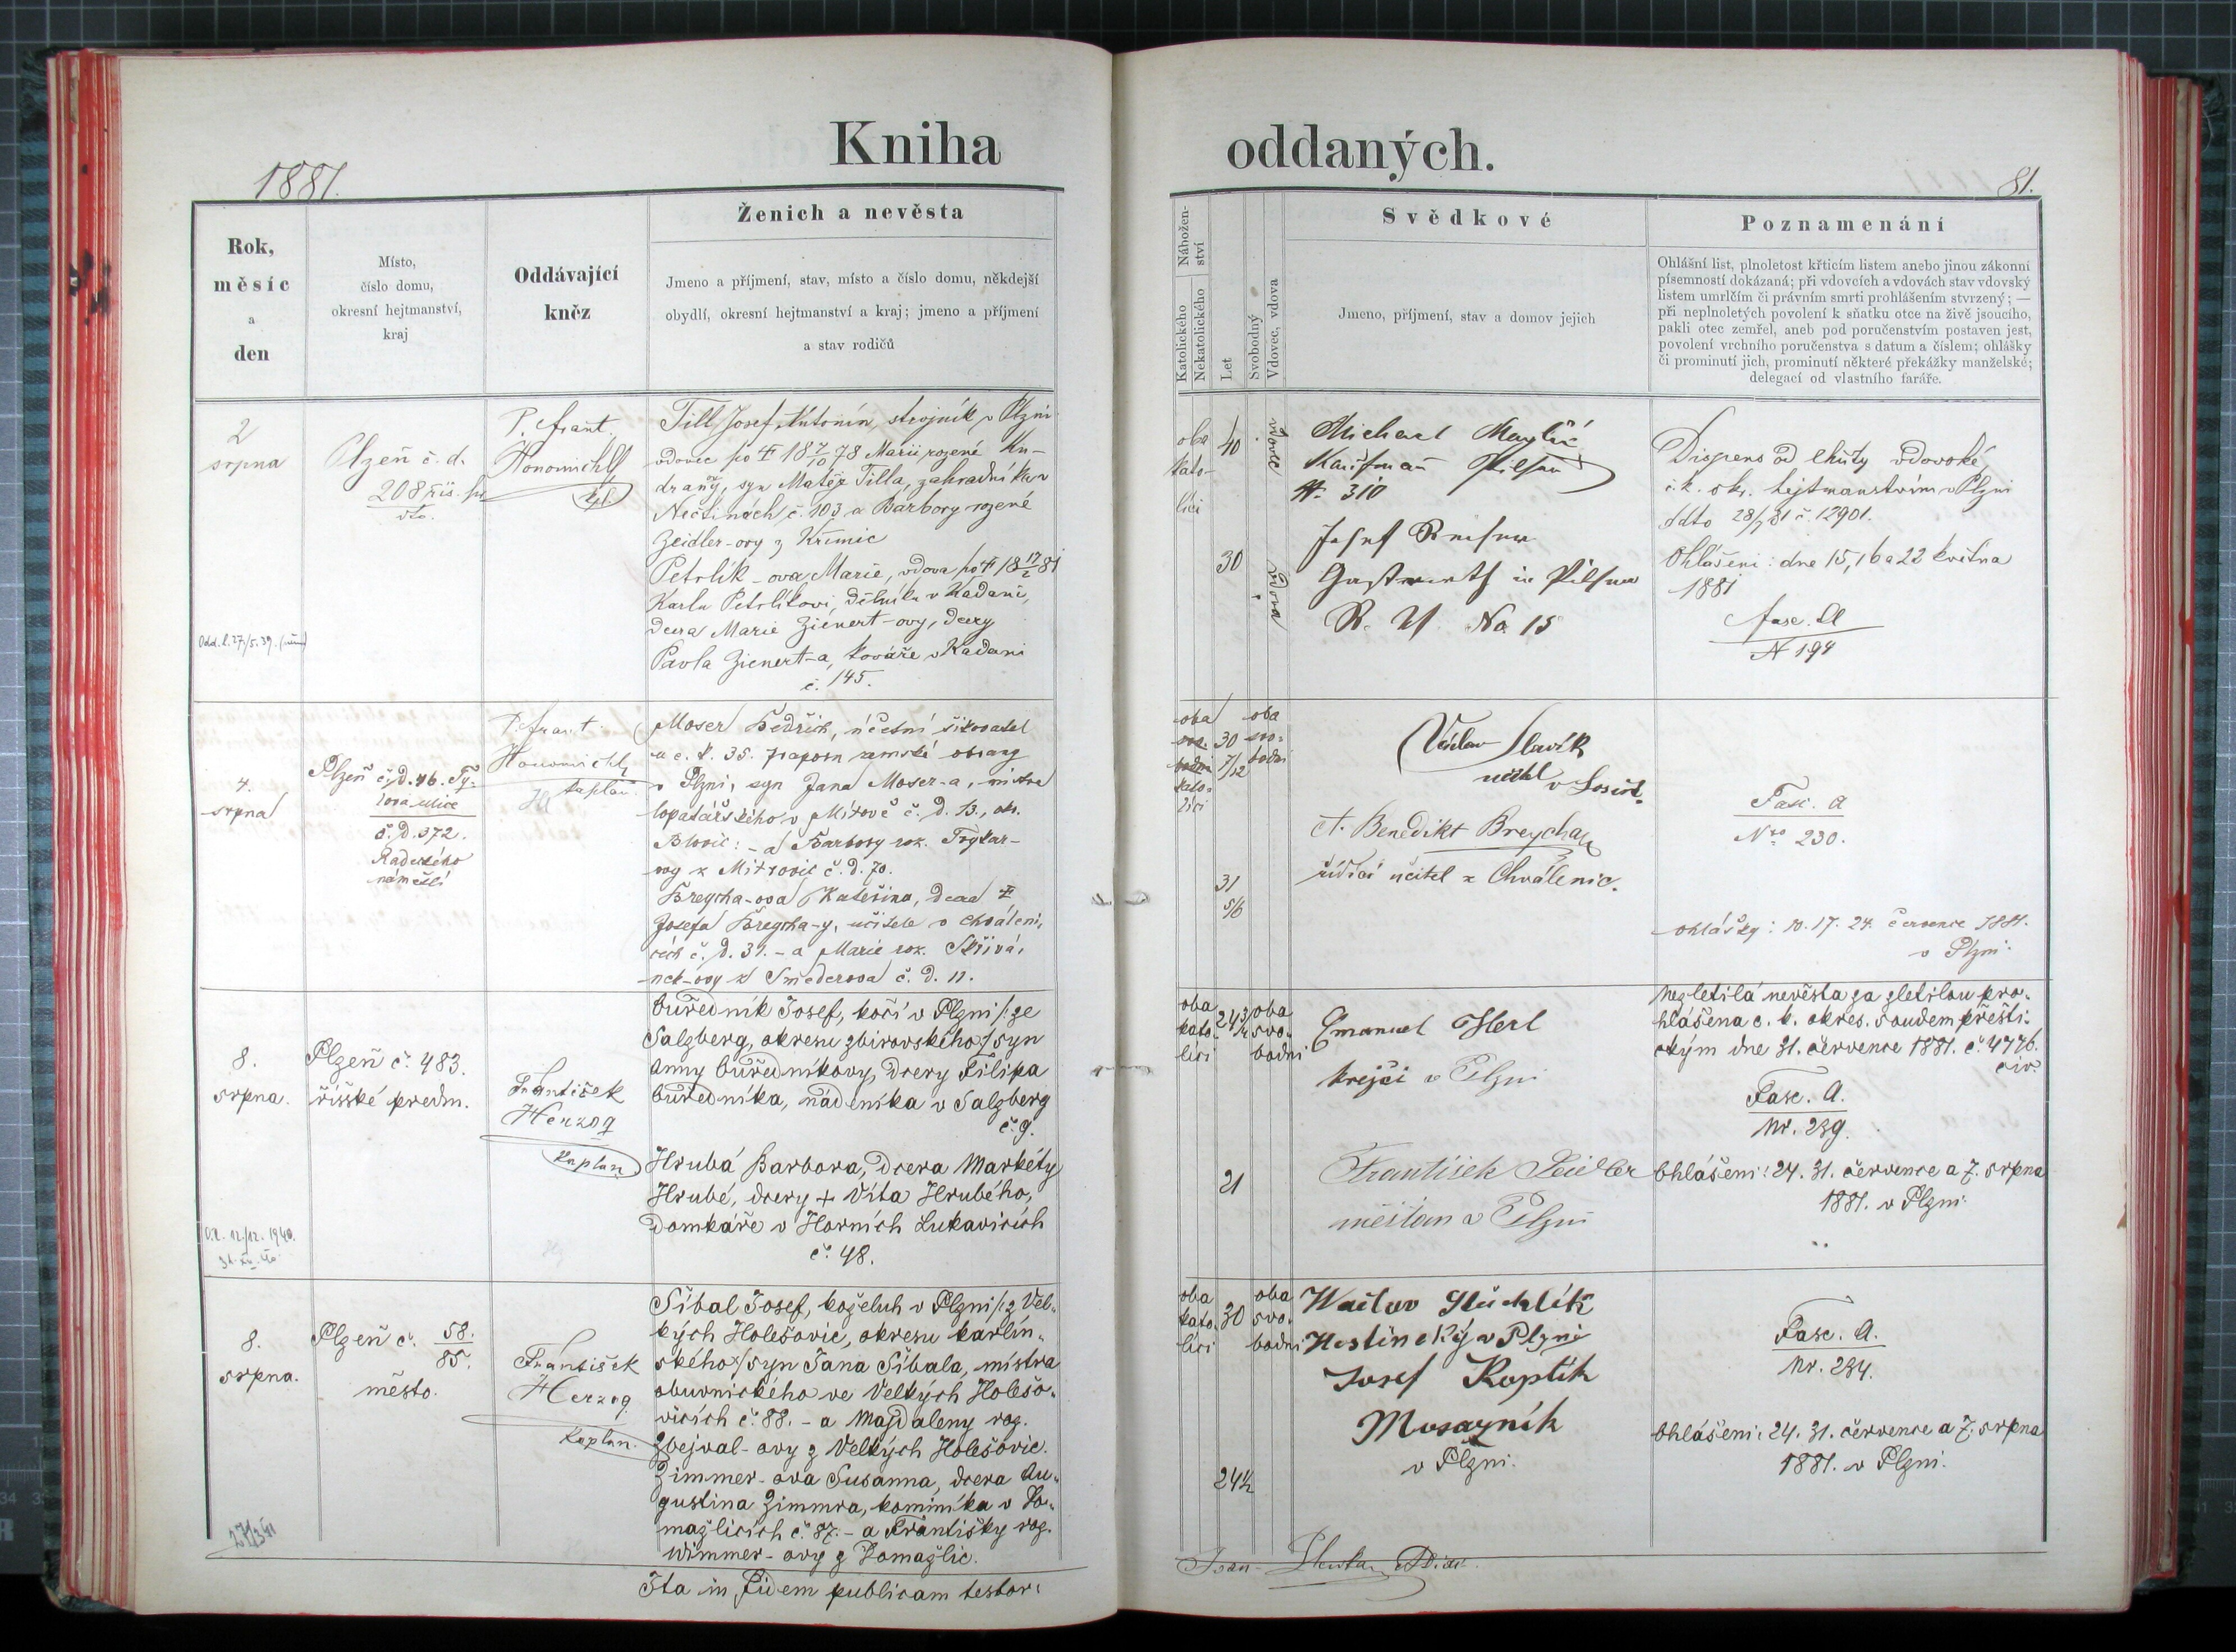 Kniha oddaných.
1881.
81.
Rok,
měsíc
a
den
Místo,
číslo domu,
okresní hejtmanství,
kraj
Oddávající
kněz
Ženich a nevěsta
Jmeno a příjmení, stav, místo a číslo domu, někdejší
obydlí, okresní hejtmanství a kraj; jmeno a příjmení
a stav rodičů
Nábožen-
ství
Katolického
Nekatolického
Let
Svobodný
Vdovec, vdova
Svědkové
Jmeno, příjmení, stav a domov jejich
Poznamenání
Ohlášní list, plnoletost křticím listem anebo jinou zákonní
písemností dokázaná; při vdovcích a vdovách stav vdovský
listem umrlčím či právním smrti prohlášením stvrzený; —
při neplnoletých povolení k sňatku otce na živě jsoucího,
pakli otec zemřel, aneb pod poručenstvím postaven jest,
povolení vrchního poručenstva s datum a číslem; ohlášky
či prominutí jich, prominutí některé překážky manželské;
delegací od vlastního faráře.
2
srpna
Plzeň č. d.
208 řís. př
P. Frant.
Honomichl
Till Josef Antonín, strojník v Plzni
vdovec po † 18 7/10 78 Marii rozené Kn-
drany, syn Matěje Tilla, zahradníka v
Nečtinách č. 103 a Barbory rozené
Zeidler-ovy z Křimic
Petrlik-ova Marie, vdova po † 18 17/2 81
Karlu Petrlíkovi, dělníku v Kadani,
dcera Marie Zienert-ovy, dcery
Pavla Zienert-a, kováře v Kadani
č. 145.
oba
kato-
líci
40
vdovec
30
vdova
Michael
Kaufmann Pilsen
N. 310
Josef
Gastwirth in Pilsen
R. V. No 15
Dispens od lhůty vdovské
c. k. okr. hejtmanstvím v Plzni
ddto 28/7 81 č. 12901.
Ohlášení: dne 15, 16 a 22 května
1881
Fasc. A
N 194
4.
srpna
Plzeň č. D. 46. Ty-
lova ulice
č. D. 372.
Radeckého
náměstí
P. Frant
Honomichl
kaplan
Moser Bedřich, účetní šikovatel
u c. k. 35. praporu zemské obrany
v Plzni, syn Jana Moser-a, mistra
lopatářského v Mítově č. D. 13., okr.
Blovic: - a Barbory roz. Frykar-
ovy z Mitrovic č. D. 70.
Breycha-ova Kateřina, dcera †
Josefa Breycha-y, učitele v Chváleni,
cích č. D. 31. - a Marie roz. Skřivá,
nek-ovy z Směderova č. D. 11.
oba
kato-
líci
30
7/12
oba
svo-
bodni
31
5/6
Václav Slavík
učitel v Losině.
A. Benedikt Breycha
řídící učitel z Chválenic.
Fasc. A
Nro 230.
ohlášky: 10. 17. 24. července 1881.
v Plzni.
8.
srpna.
Plzeň č. 483.
říšské předm.
František
Herzog
kaplan
Ouředník Josef, kočí v Plzni /: ze
Salzberg, okresu zbirovského :/ syn
Anny Ouředníkovy, dcery Filipa
Ouředníka, nádeníka v Salzberg
č. 9.
Hrubá Barbora, dcera Markéty
Hrubé, dcery + Víta Hrubého,
domkáře v Horních Lukavicích
č. 48.
oba
kato-
líci
24 3/4
oba
svo-
bodni
21
Emanuel Herl
krejčí v Plzni
František Zeidler
měšťan v Plzni
Nezletilá nevěsta za zletilou pro-
hlášena c. k. okres. soudem přešti-
ckým dne 31. července 1881. č. 4776.
civ.
Fasc. A.
Nr. 239.
Ohlášení: 24. 31. července a 7. srpna
1881. v Plzni.
8.
srpna.
Plzeň č. 58.
85.
město.
František
Herzog
kaplan.
Šíbal Josef, koželuh v Plzni /: z Vel-
kých Holešovic, okresu karlín-
ského :/ syn Jana Šíbala, mistra
obuvnického ve Velkých Holešo-
vicích č. 88. - a Magdaleny roz.
Zbejval-ovy z Velkých Holešovic.
Zimmer-ova Susanna, dcera Au-
gustina Zimmra, kominíka v Do-
mažlicích č. 87. - a Františky roz.
Wimmer-ovy z Domažlic.
oba
kato-
líci
30
oba
svo-
bodni
24 1/2
Waclav Stüchlík
Hostinský v Plzni
Josef Koptik
Mosazník
v Plzni.
Fasc. A.
Nr. 234.
Ohlášení: 24. 31. července a 7. srpna
1881. v Plzni.
Ita in fidem publicam testor: